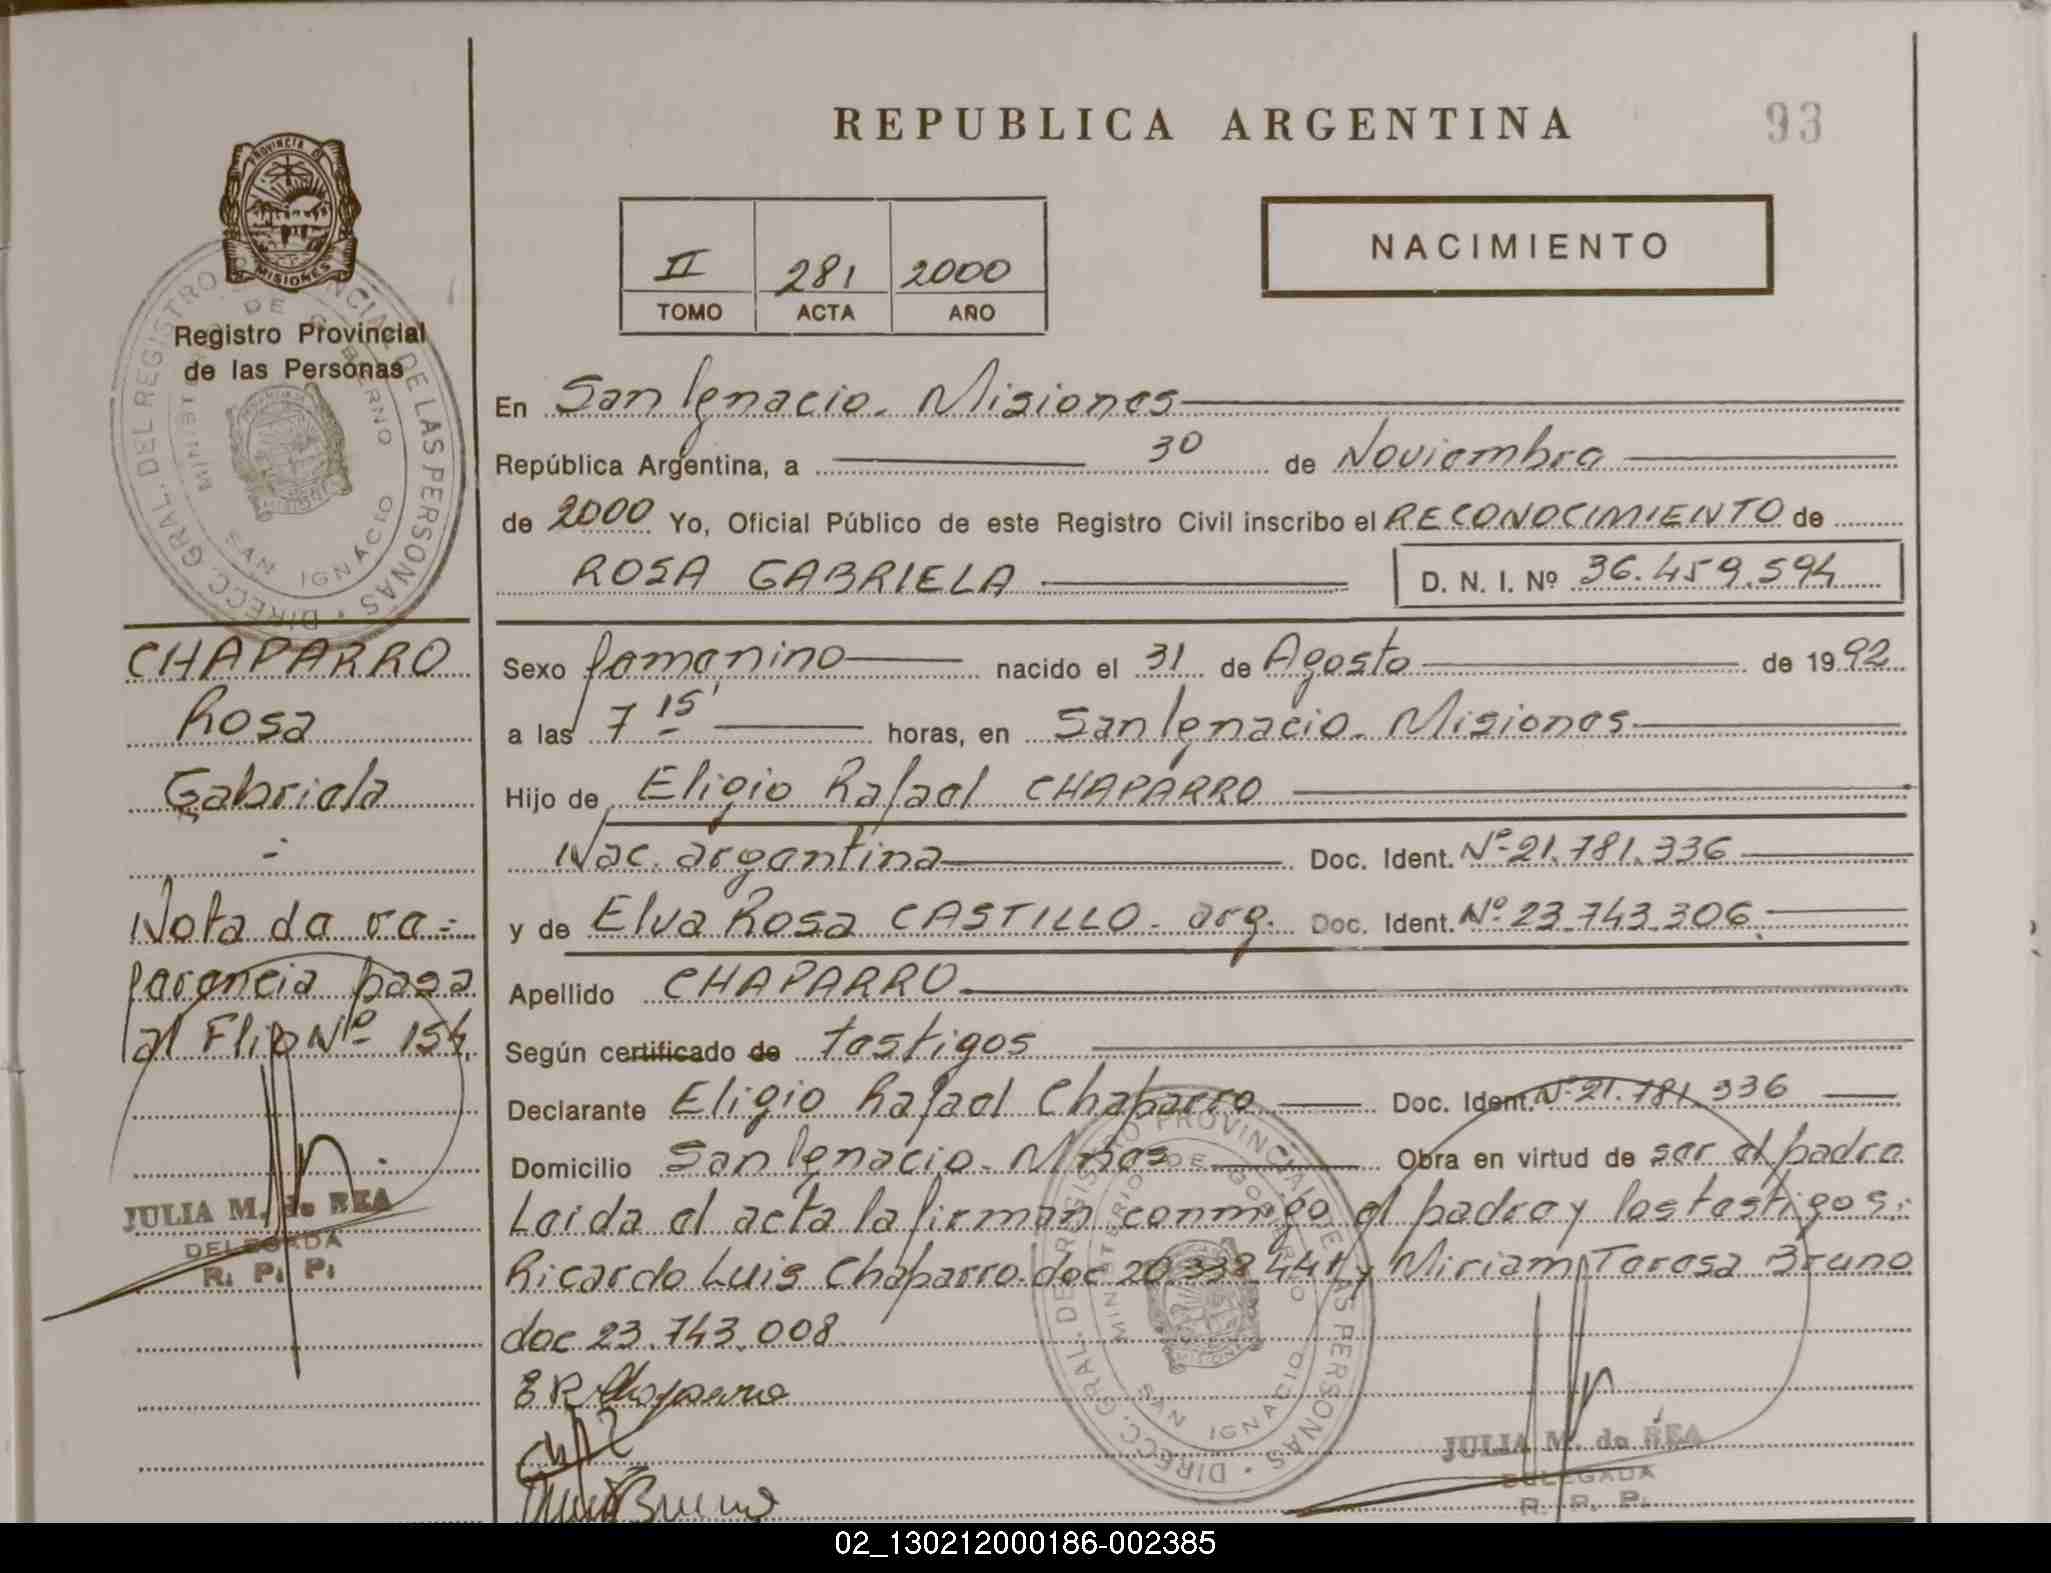 REPUBLICA ARGENTINA
93
PROVINCIA DE
MISIONES
Registro Provincial
de las Personas
DIRECC. GRAL. DEL REGISTRO PROVINCIAL DE LAS PERSONAS
MINISTERIO DE GOBIERNO
SAN IGNACIO
II 281 2000
TOMO ACTA AÑO
NACIMIENTO
En San Ignacio - Misiones
República Argentina, a 30 de Noviembre
de 2000 Yo, Oficial Público de este Registro Civil inscribo el RECONOCIMIENTO de
ROSA GABRIELA D. N. I. Nº 36.459.594
CHAPARRO
Rosa
Gabriela
-
Nota de re-
ferencia pasa
al Flio Nº 154
JULIA M. de REA
DELEGADA
R. P. P.
Sexo femenino nacido el 31 de Agosto de 1992
a las 7 15' horas, en San Ignacio - Misiones
Hijo de Eligio Rafael CHAPARRO
Nac. argentina Doc. Ident. Nº 21.781.336
y de Elva Rosa CASTILLO - arg. Doc. Ident. Nº 23.743.306
Apellido CHAPARRO
Según certificado de testigos
Declarante Eligio Rafael Chaparro Doc. Ident. Nº 21.781.336
Domicilio San Ignacio - Mnes Obra en virtud de ser el padre
Leida el acta la firman conmigo el padre y los testigos:
Ricardo Luis Chaparro. doc 20.338.441 y Miriam Teresa Bruno
doc 23.743.008
E R Chaparro
Bruno
DIRECC. GRAL. DEL REGISTRO PROVINCIAL DE LAS PERSONAS
MINISTERIO DE GOBIERNO
SAN IGNACIO
JULIA M. de REA
DELEGADA
R. P. P.
02_130212000186-002385